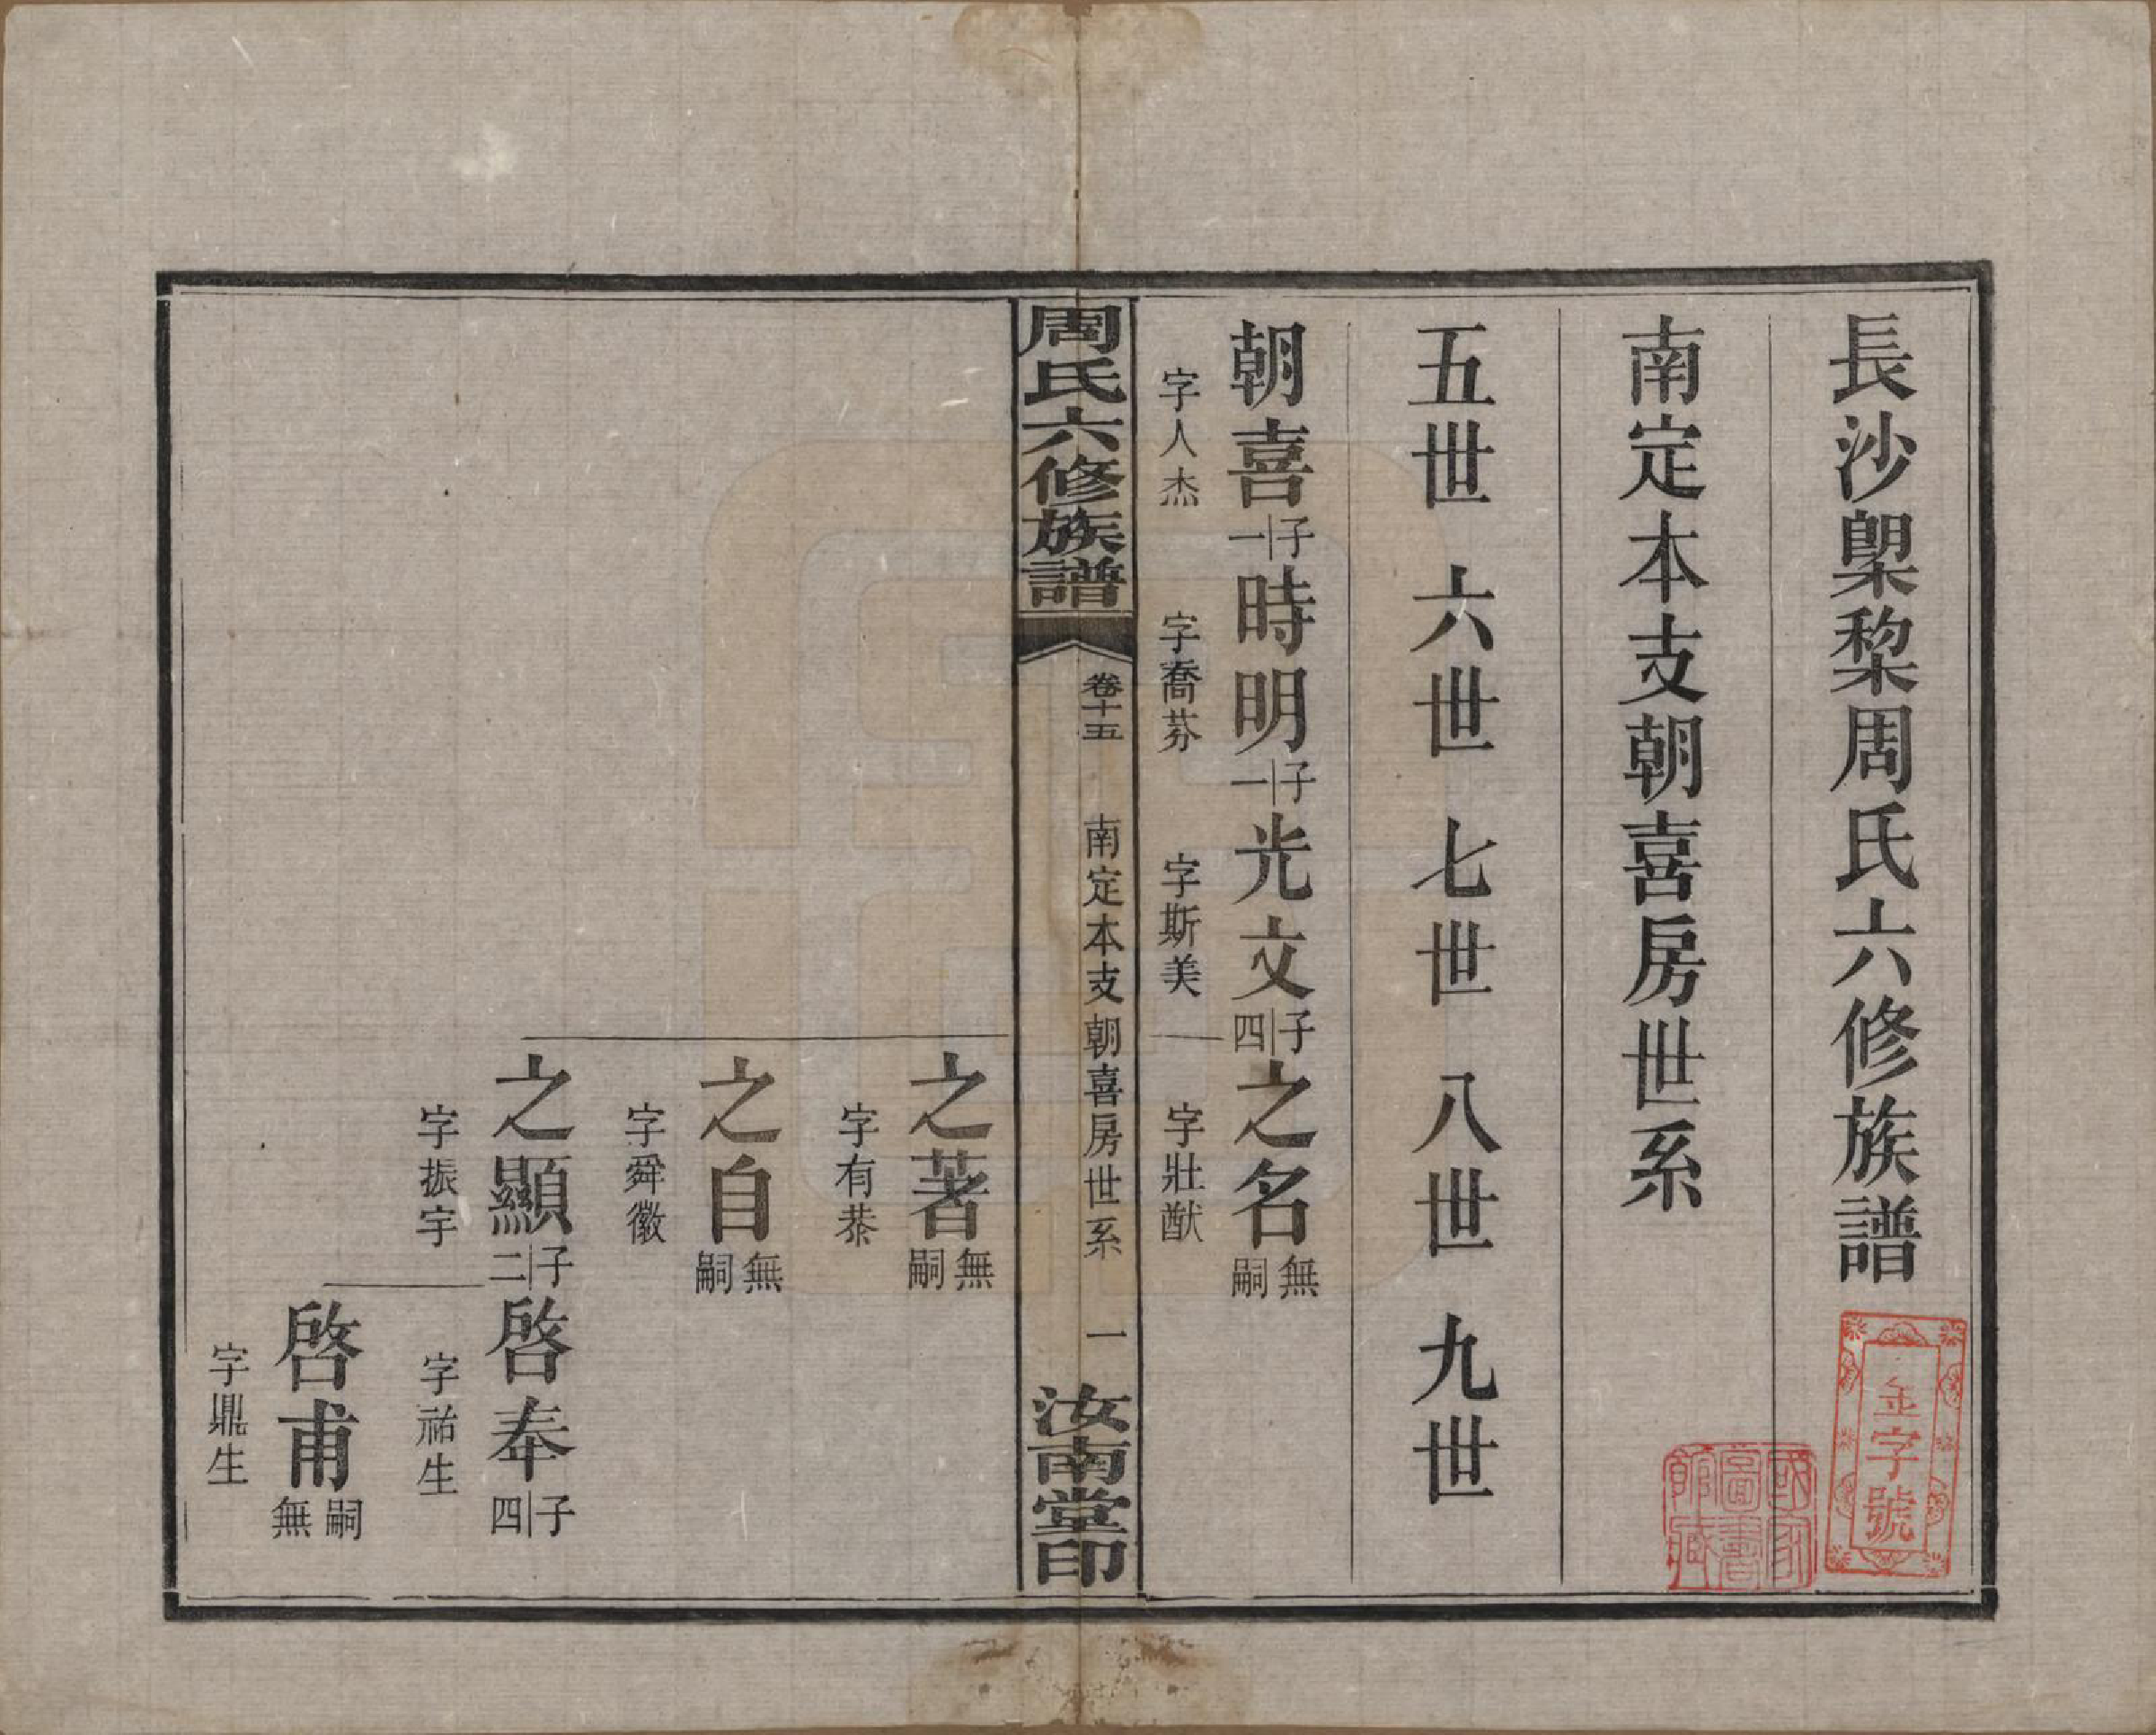 長沙㮚棃周氏六修族譜
金字號
國家圖書館藏
南定本支朝喜房世系
五世 六世 七世 八世 九世
朝喜 子一 時明 子一 光文 子四 之名 無嗣
字人杰 字喬芬 字斯美 字壯猷
周氏六修族譜 卷十五 南定本支朝喜房世系 一 汝南堂印
之著 無嗣
字有恭
之自 無嗣
字舜徽
之顯 子二 啓奉 子四
字振宇 字祐生
啓甫 嗣無
字鼎生